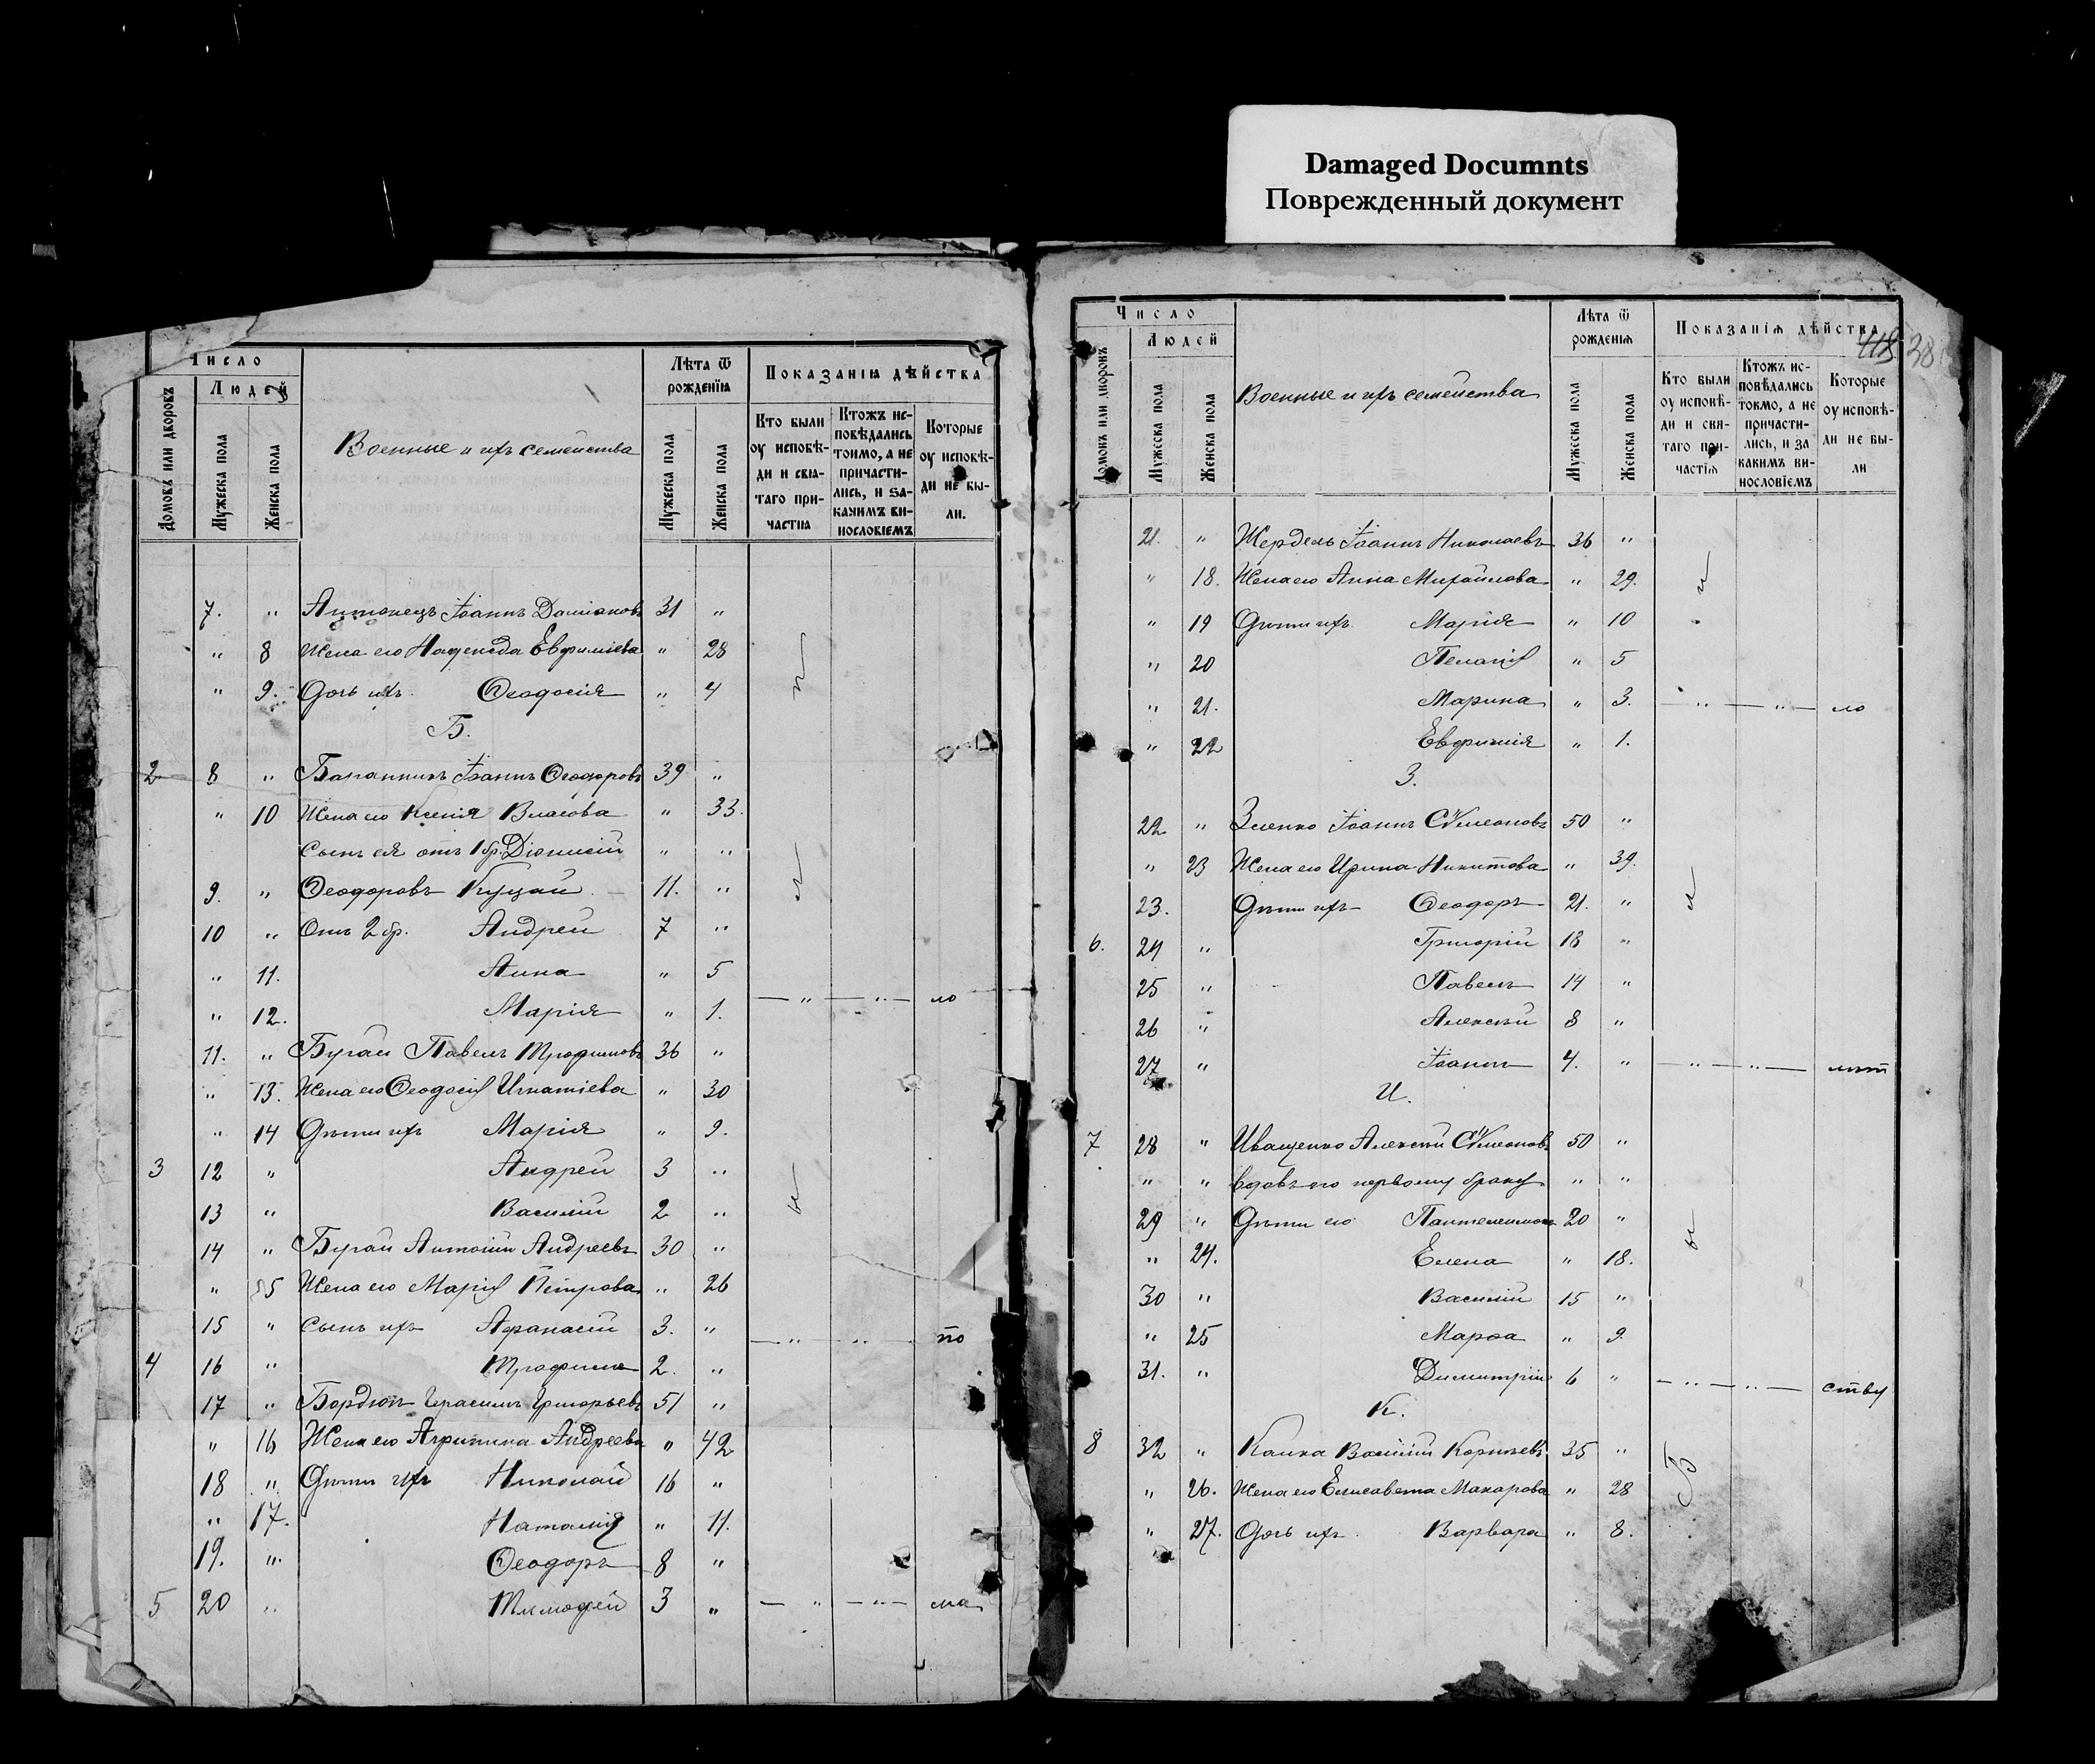 Damaged Documnts
Поврежденный документ
Число
Людей
Домовъ или дворовъ
Мужеска пола
Женска пола
Военные и ихъ семейства
Лѣта ѿ рожденїѧ
Мужеска пола
Женска пола
Показанїѧ дѣйства
Кто были оу исповѣди и свѧтаго причастїѧ
Ктожъ исповѣдались токмо, а не причастились, и за какимъ винословїемъ
Которые оу исповѣди не были.
7. " Антонецъ Іоаннъ Даміановъ 31 "
" 8 Жена его Надежда Евфиміева " 28
" 9. Дочь ихъ Ѳеодосія " 4
Б.
2 8 " Іоаннъ Ѳеодоровъ 39 "
" 10 Жена его Ксенія Власова " 33.
Сынъ ея отъ 1 бр. Діонисій " "
9. " Ѳеодоровъ Куцай 11. "
10 " Отъ 2 бр. Андрей 7 "
" 11. Анна " 5
" 12. Марія " 1. — " — " — ло
11. " Бугай Павелъ Трофимовъ 36 "
" 13. Жена его Ѳеодосія Игнатіева " 30
" 14 Дѣти ихъ Марія " 9.
3 12 " Андрей 3 "
13 " Василій 2 "
14 " Бугай Антоній Андреевъ 30 "
" 15 Жена его Марія Петрова " 26
15 " Сынъ ихъ Афанасій 3. " — " — " — по
4 16 " Трофимъ 2. "
17 " Герасимъ Григорьевъ 51 "
" 16 Жена его Агрипина Андреева " 42
18 " Дѣти ихъ Николай 16 "
" 17. Наталія " 11.
19. " Ѳеодоръ 8 "
5 20 " Тимофей 3 " — " — " — ма
118 38
Число
Людей
Домовъ или дворовъ
Мужеска пола
Женска пола
Военные и ихъ семейства
Лѣта ѿ рожденїѧ
Мужеска пола
Женска пола
Показанїѧ дѣйства
Кто были оу исповѣди и свѧтаго причастїѧ
Ктожъ исповѣдались токмо, а не причастились, и за какимъ винословїемъ
Которые оу исповѣди не были
21. " Жердель Іоаннъ Николаевъ 36 "
" 18. Жена его Анна Михайлова " 29.
" 19 Дѣти ихъ Марія " 10
" 20 Пелагія " 5
" 21. Марина " 3. — " — " — ло
" 22 Евфимія " 1.
З.
22 " Зленко Іоаннъ Сѵмеоновъ 50 "
" 23 Жена его Ирина Никитова " 39.
23. Дѣти ихъ Ѳеодоръ 21. "
6. 24 " Григорій 18 "
25 " Павелъ 14 "
26 " Алексѣй 8 "
27 " Іоаннъ 4. " — " — " — лѣт
И.
7 28 " Иващенко Алексѣй Сѵмеоновъ 50 "
" " вдовъ по первому браку " "
29 " Дѣти его Пантелеимонъ 20 "
" 24. Елена " 18.
30 " Василій 15 "
" 25 Марѳа " 9
31. " Димитрій 6 " — " — " — ству
К.
8 32 " Василій 35 "
" 26. Жена его Елисавета Макарова " 28
" 27. Дочь ихъ Варвара " 8.